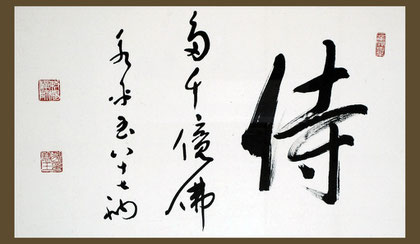 侍
多千億佛
永平玉八十七衲